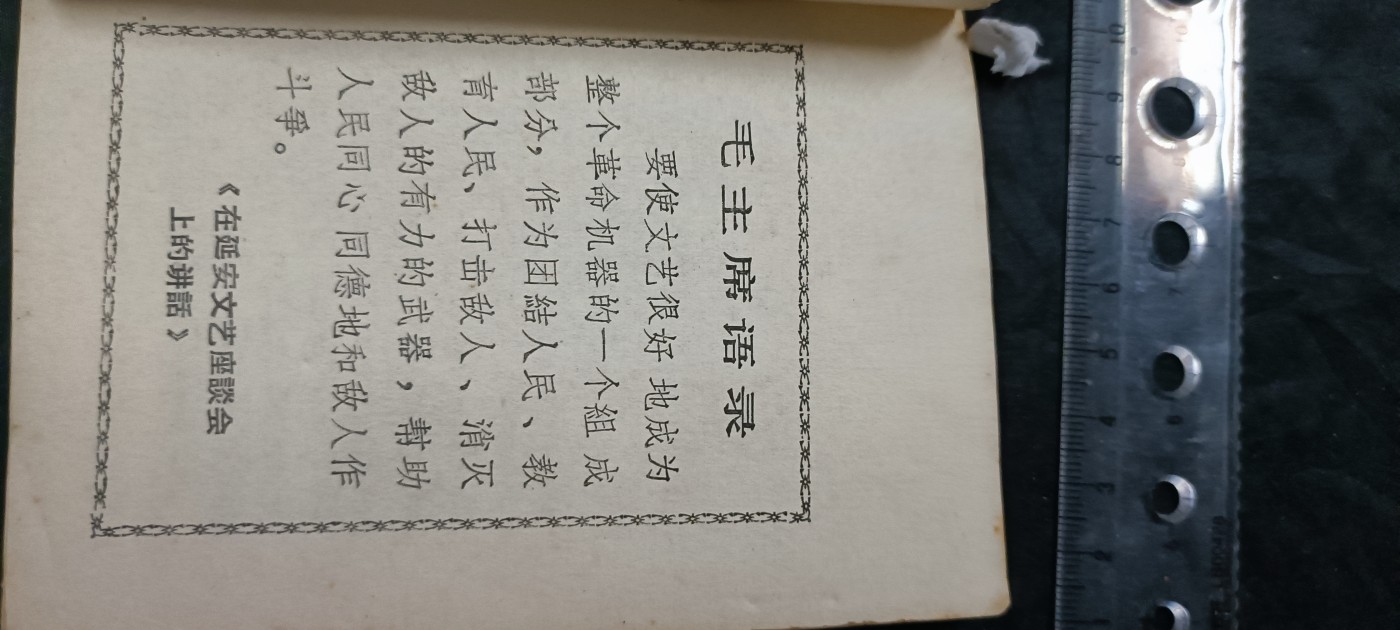 毛主席语录
要使文艺很好地成为
整个革命机器的一个組成
部分，作为团結人民、教
育人民、打击敌人、消灭
敌人的有力的武器，幫助
人民同心同德地和敌人作
斗爭。
《在延安文艺座談会
上的讲話》
10
9
8
7
6
5
4
3
2